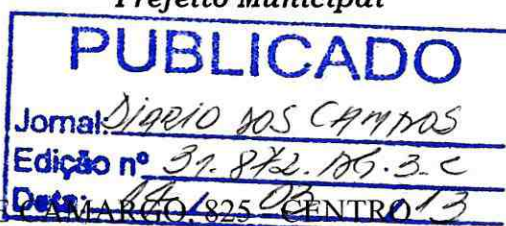 Prefeito Municipal
PUBLICADO
Jornal: Diario dos Campos
Edição nº 31.872. pg. 3. c
Data: 03 / 13
E CAMARGO, 825 - CENTRO